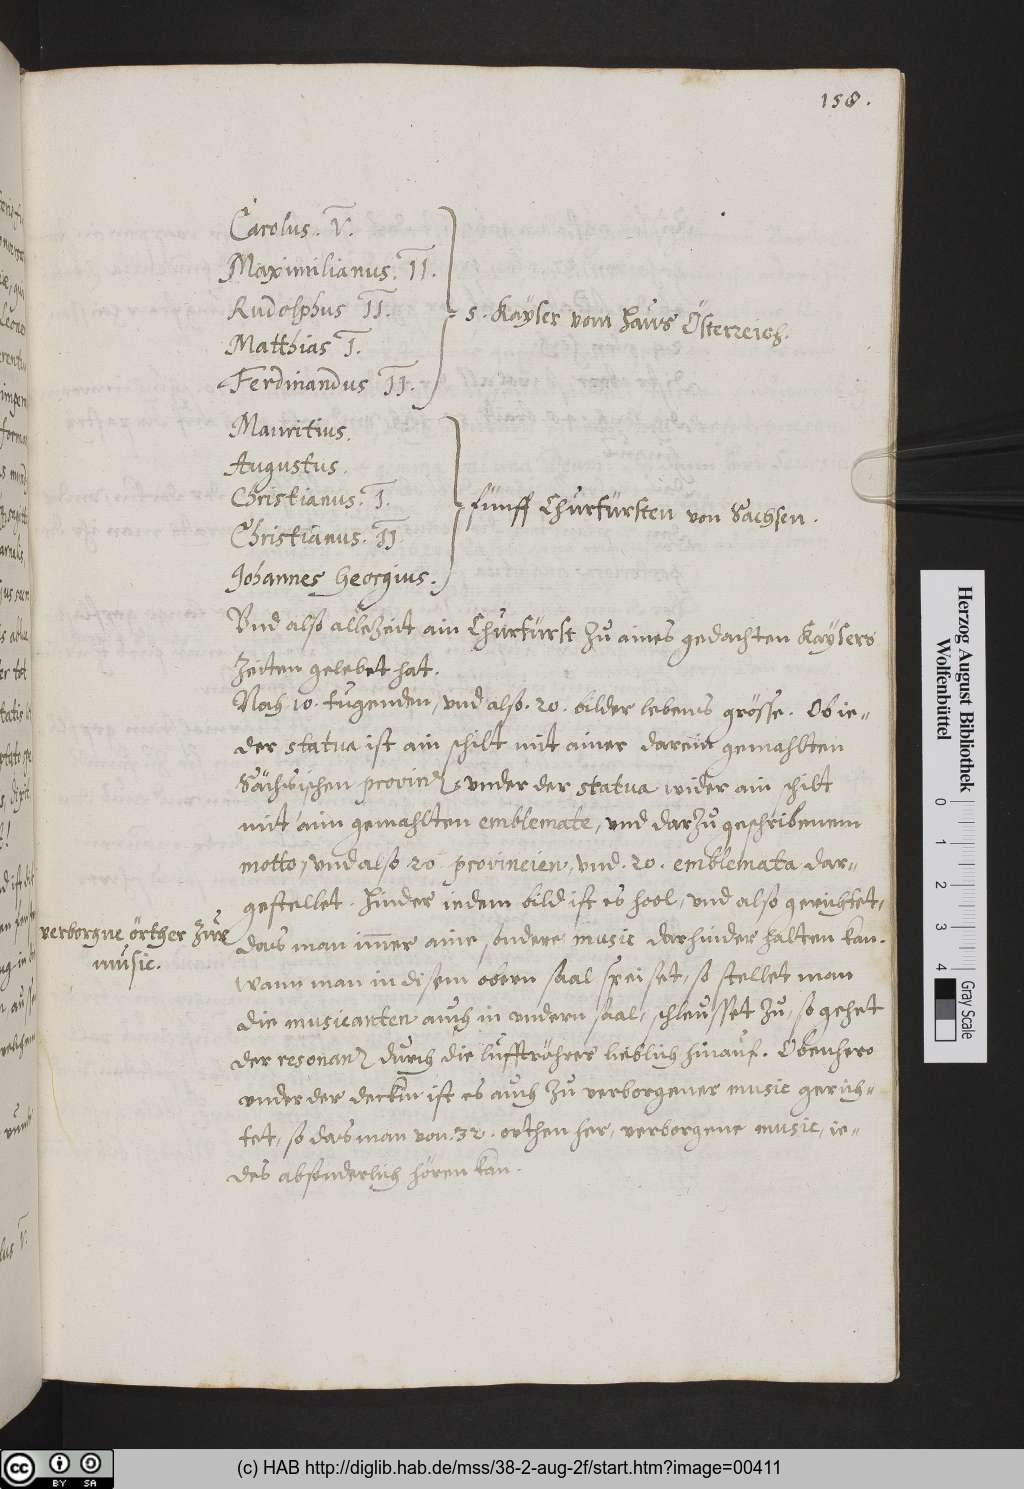 158.
Carolus. V.
Maximilianus. II.
Rudolphus II.
Matthias I.
Ferdinandus II.
5. Kaÿser vom Haus Österreich.
Mauritius.
Augustus.
Christianus. I.
Christianus. II
Johannes Georgius.
fünff Churfürsten von Sachsen.
Vnd also alleZeit ain Churfürst Zu aines gedachten Kaÿsers
Zeiten gelebet hat.
Nach 10. tugenden, vnd also. 20. bilder lebens grösse. Ob ie-
der statua ist ain schilt mit ainer darein gemahlten
Sächsischen provinz, vnder der statua wider ain schilt
mit aim gemahlten emblemate, vnd darZu geschribenem
motto, vnd also 20 provincien, vnd. 20. emblemata dar-
gestellet. Hinder iedem bild ist es hool, vnd also gerichtet,
das man immer aine sondere music darhinder halten kan.
verborgne örther Zur
music.
wann man in disem obern saal speiset, so stellet man
die musicanten auch in vndern saal, schleusset Zu, so gehet
der resonanz durch die lufftröhrer lieblich hinauf. Obenhero
vnder der deckin ist es auch Zu verborgener music gerich-
tet, so das man von. 32. orthen her, verborgene music, ie-
des absonderlich hören kan.
Herzog August Bibliothek
Wolfenbüttel
0 1 2 3 4
Gray Scale
cc BY SA
(c) HAB http://diglib.hab.de/mss/38-2-aug-2f/start.htm?image=00411